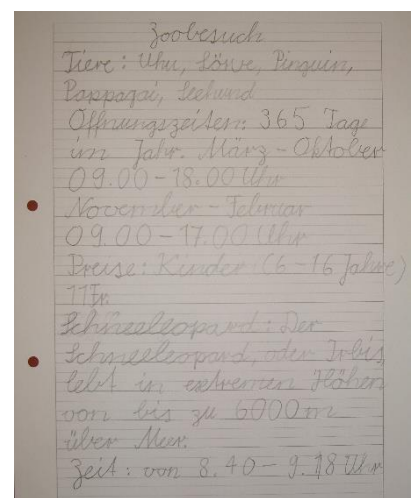 Zoobesuch
Tiere: Uhu, Löwe, Pinguin,
Pappagai, Seehund
Öffnungszeiten: 365 Tage
im Jahr. März - Oktober
09.00-18.00 Uhr
November - Februar
09.00-17.00 Uhr
Preise: Kinder (6-16 Jahre)
11Fr.
Schneeleopard: Der
Schneeleopard, oder Irbis,
lebt in extremen Höhen
von bis zu 6000m
über Meer.
Zeit: von 8.40-9.18 Uhr